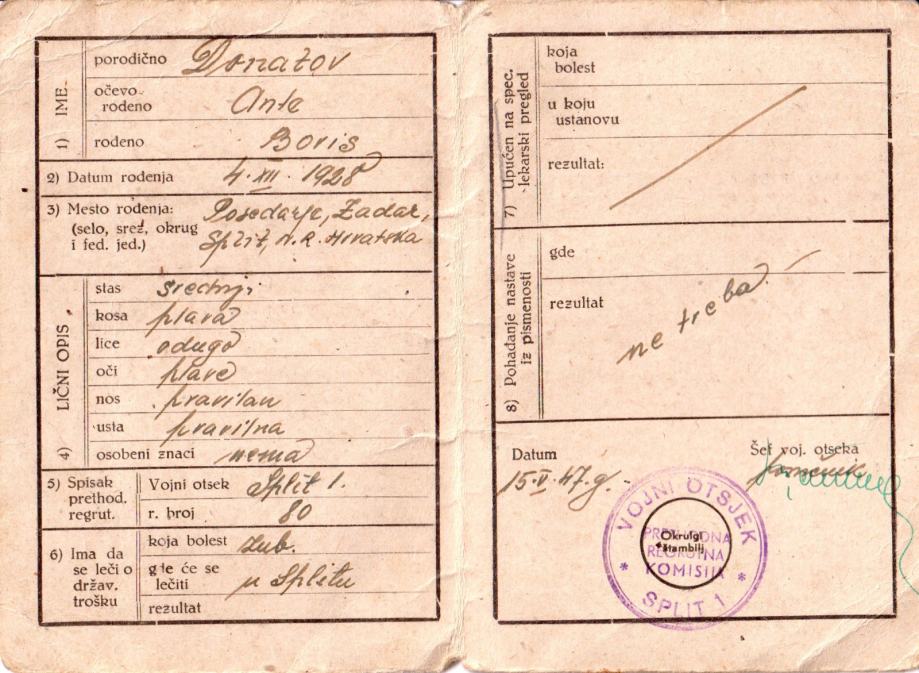 1) IME.
porodično Donatov
očevo rođeno Ante
rođeno Boris
2) Datum rođenja 4. XII. 1928
3) Mesto rođenja: Posedarje, Zadar,
(selo, srez, okrug Split, N. R. Hrvatska
i fed. jed.)
4) LIČNI OPIS
stas srednji
kosa plava
lice odugo
oči plave
nos pravilan
usta pravilna
osobeni znaci nema
5) Spisak prethod. regrut.
Vojni otsek Split 1.
r. broj 80
6) Ima da se leči o držav. trošku
koja bolest zub.
gde će se lečiti u Splitu
rezultat
7) Upućen na spec. lekarski pregled
koja bolest
u koju ustanovu
rezultat:
8) Pohađanje nastave iz pismenosti
gde
rezultat
ne treba.
Datum
15. V. 47. g.
Šef voj. otseka
VOJNI OTSJEK
Okrulgi
štambilj
REGRUTNA
KOMISIJA
* SPLIT 1 *